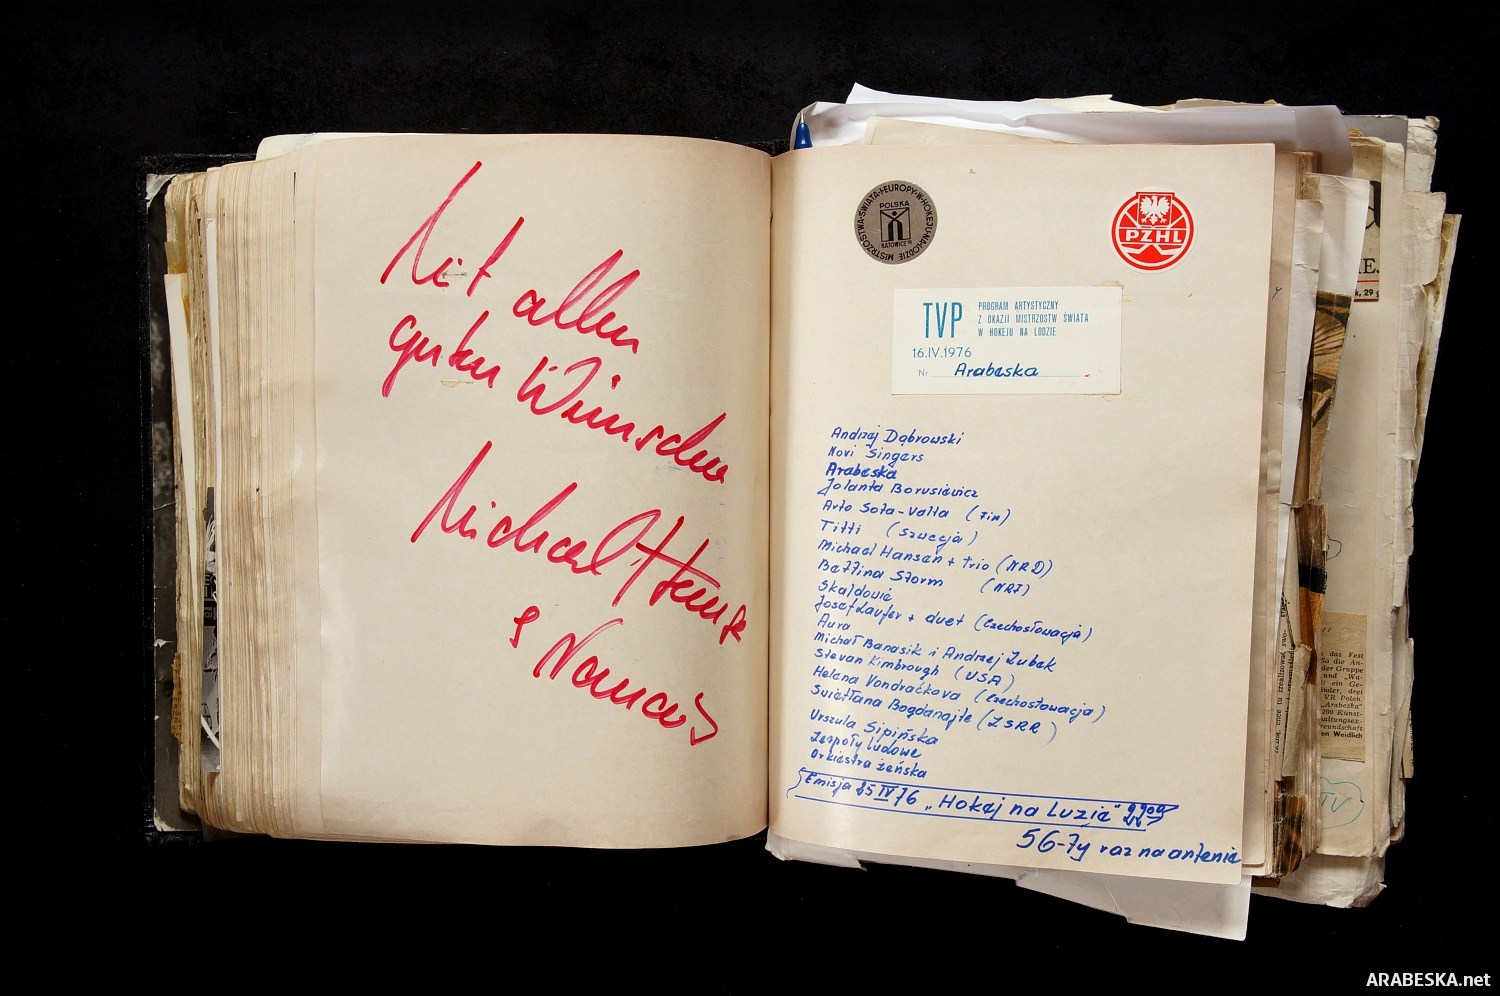 Mit allen
guten Wünschen
Michael Hansen
& Nancies
MISTRZOSTWA·ŚWIATA·I·EUROPY·W·HOKEJU·NA·LODZIE
POLSKA
KATOWICE'76
PZHL
TVP PROGRAM ARTYSTYCZNY
Z OKAZJI MISTRZOSTW ŚWIATA
W HOKEJU NA LODZIE
16.IV.1976
Nr Arabeska
Andrzej Dąbrowski
Novi Singers
Arabeska
Jolanta Borusiewicz
Arto Sota-Valta (Fin)
Titti (Szwecja)
Michael Hansen + trio (NRD)
Bettina Storm (NRF)
Skaldowie
Josef Laufer + duet (Czechosłowacja)
Aura
Michał Banasik i Andrzej Lubek
Stevan Kimbrough (USA)
Helena Vondračkova (Czechosłowacja)
Swietłana Bogdanajte (ZSRR)
Urszula Sipińska
Zespoły ludowe
Orkiestra żeńska
Emisja 25 IV 76 „Hokej na Luzie"
56-ty raz na antenie
das Fest
So die An-
der Gruppe
und „Wa-
ein Ge-
VR Polen.
"Arabeska"
200 Künst-
altungsez-
reundschaft
en Weidlich
TV
ARABESKA.net